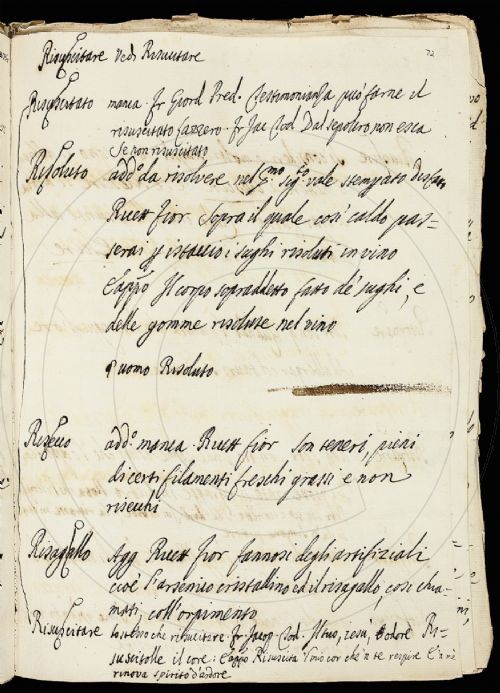 Risuscitare Vedi Risucitare
72
Risuscitato manca. Fr Giord Pred. Testimonianza può farne il
risuscitato Lazzero. Fr Jac Tod. Dal sepolcro non esca
Se non risuscitato
Risoluto add.º da risolvere nel p.mo sig.to vale stemprato
Ricett Fior Sopra il quale così caldo pas=
serai p istaccio i sughi risoluti in vino
E appo Il corpo sopraddetto fatto de' sughi, e
delle gomme risolute nel vino
Quomo Risoluto
Risecco add.º manca. Ricett Fior Son teneri, pieni
di certi filamenti freschi grassi e non
risecchi
Risagallo Agg Ricett Fior fannosi degli artifiziali
cioè l'arsenico cristallino ed il risagallo, così chia=
mati, coll'orpimento
Risuscitare lo stesso che risucitare. Fr Jacop. Tod. Il tuo, Gesù, odore Ri=
suscitolle il core: E appo Risuscita
rinova spirito d'ardore